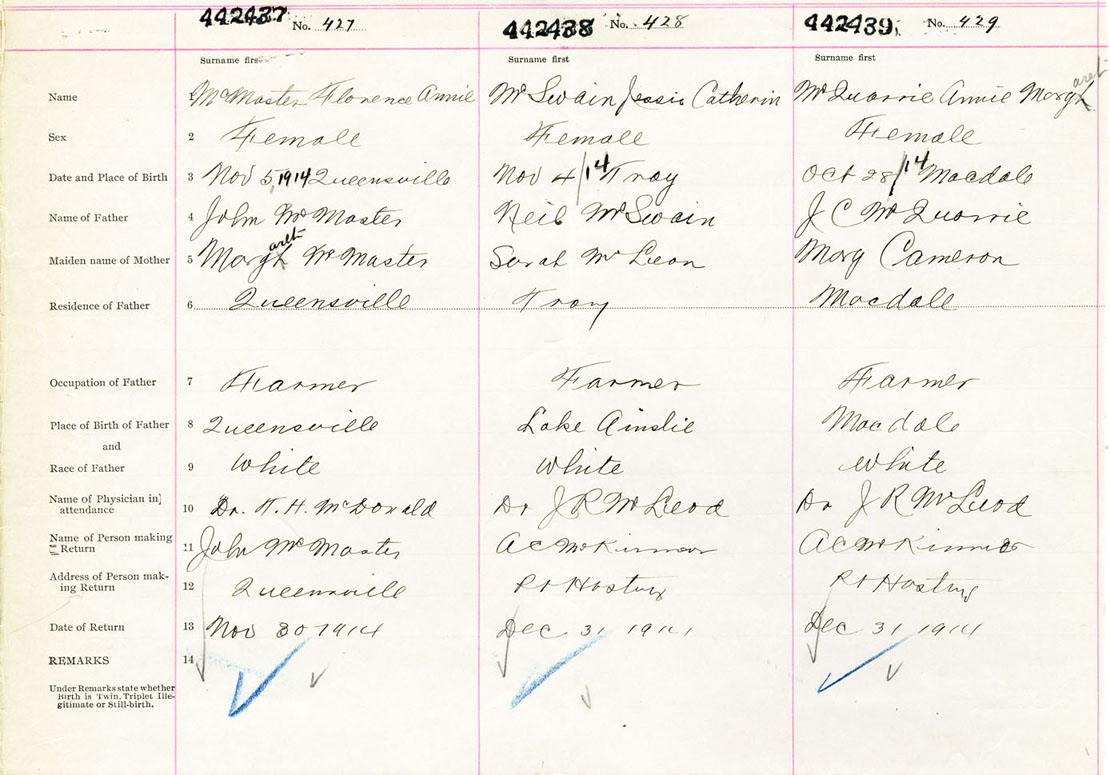 442437 No. 427 442438 No. 428 442439 No. 429
Surname first Surname first Surname first
Name McMaster Florence Annie McSwain Jessie Catherin McQuarrie Annie Margaret
Sex 2 Female Female Female
Date and Place of Birth 3 Nov 5, 1914 Queensville Nov 4/14 Troy Oct 28/14 Macdale
Name of Father 4 John McMaster Neil McSwain J C McQuarrie
Maiden name of Mother 5 Margaret McMaster Sarah McLean Mary Cameron
Residence of Father 6 Queensville Troy Macdale
Occupation of Father 7 Farmer Farmer Farmer
Place of Birth of Father 8 Queensville Lake Ainslie Macdale
and
Race of Father 9 White White White
Name of Physician in
attendance 10 Dr. T. H. McDonald Dr J R McLeod Dr J R McLeod
Name of Person making
Return 11 John McMaster A C McKinnon A C McKinnon
Address of Person mak-
ing Return 12 Queensville Pt Hastings Pt Hastings
Date of Return 13 Nov 30 1914 Dec 31 1914 Dec 31 1914
REMARKS 14
Under Remarks state whether
Birth is Twin, Triplet Ille-
gitimate or Still-birth.